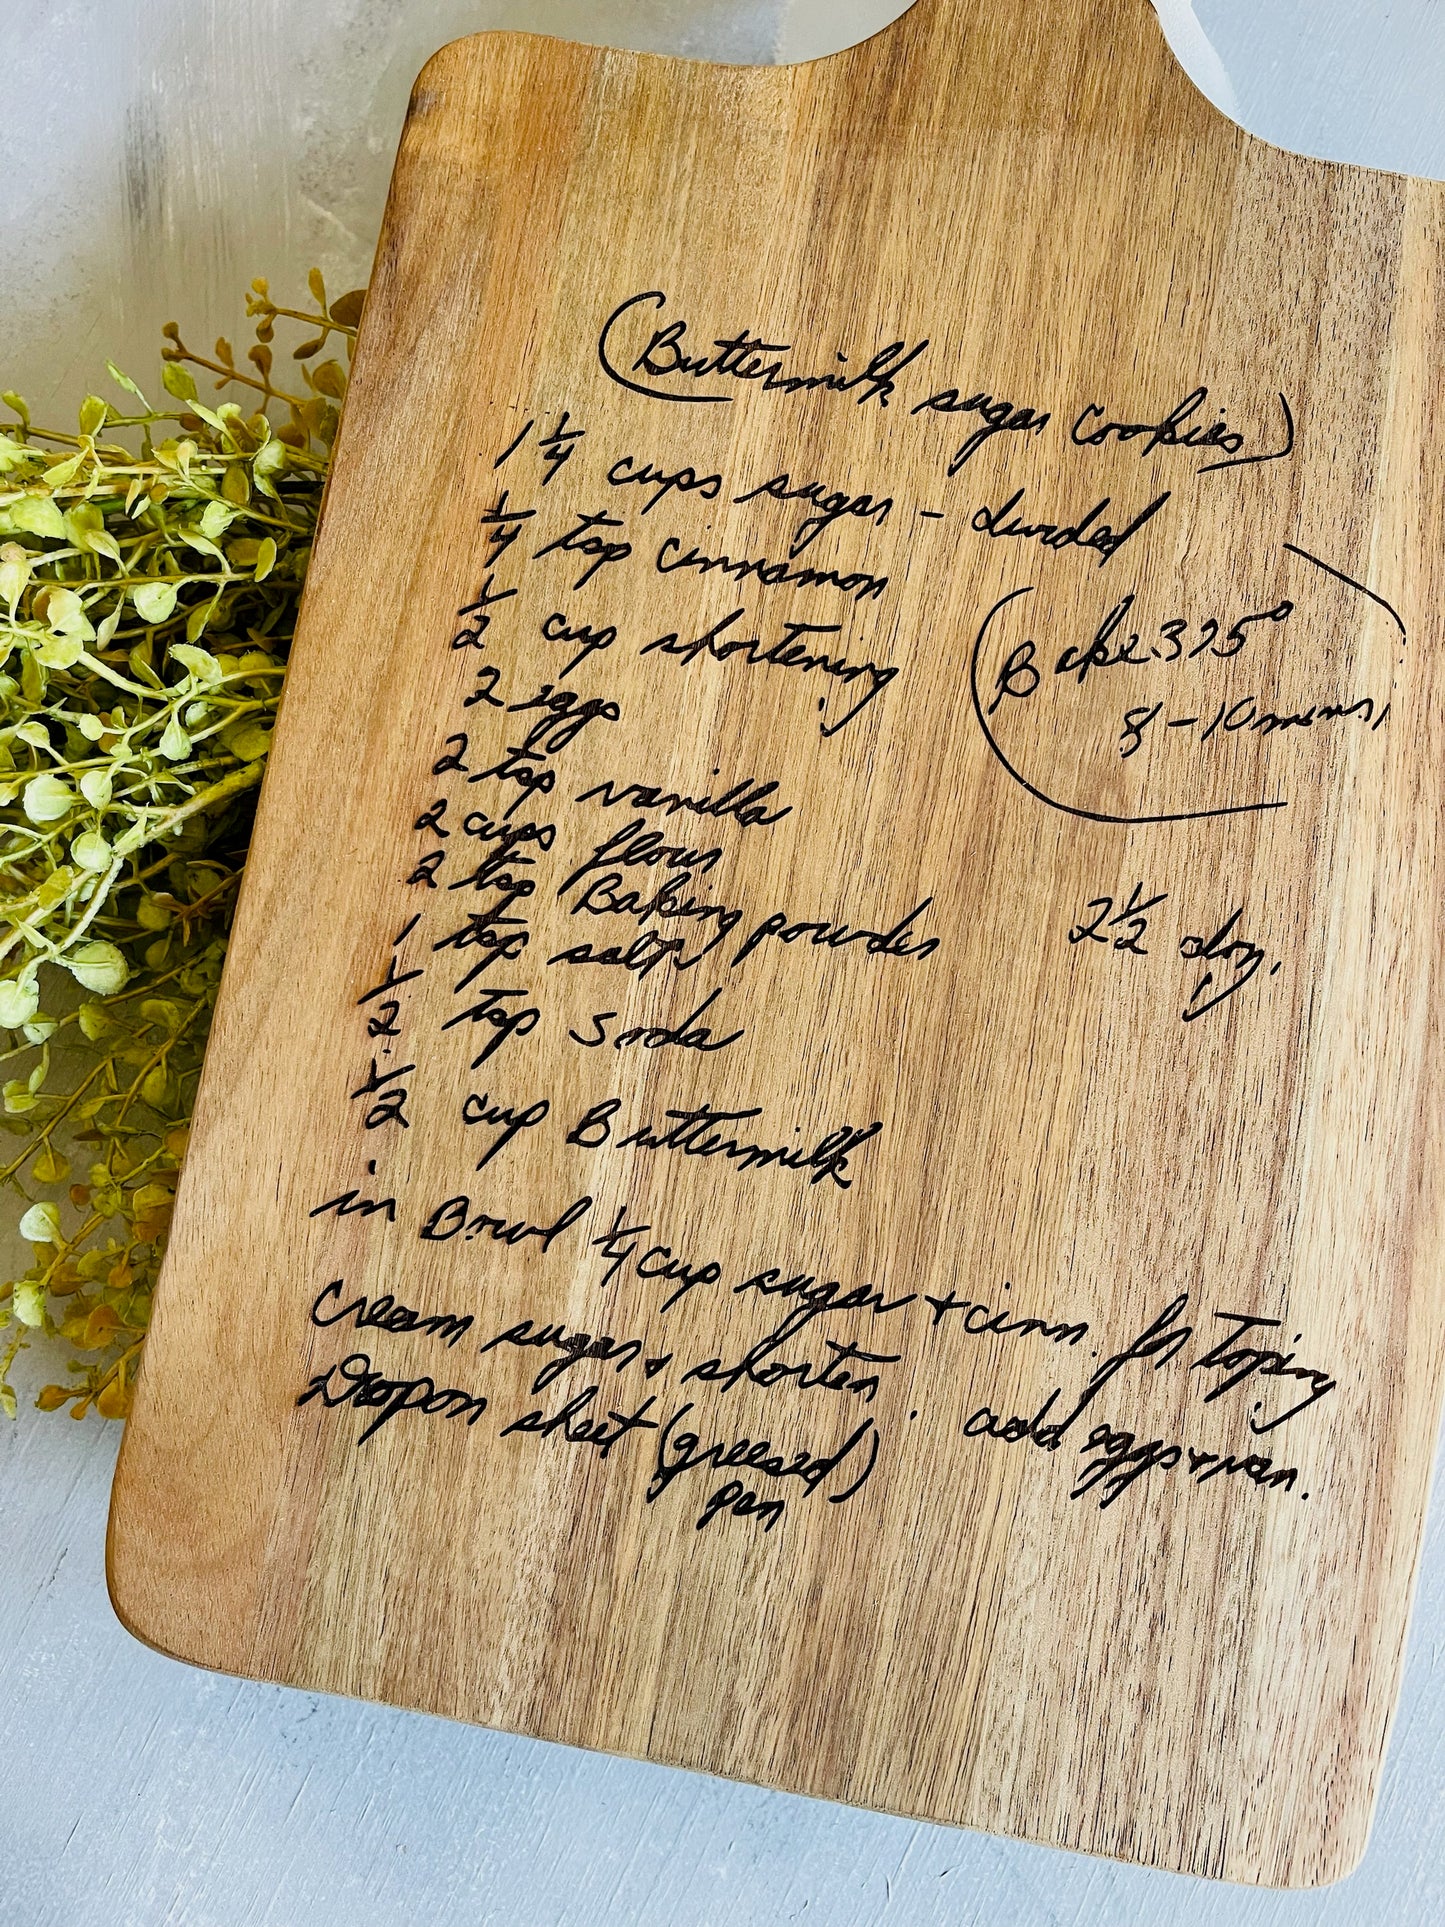 (Buttermilk sugar cookies)
1 1/4 cups sugar - divided
1/4 tsp cinnamon
1/2 cup shortening
Bake 375°
8-10 mins.
2 eggs
2 tsp vanilla
2 cups flour
2 tsp Baking powder
2 1/2 doz.
1 tsp salt
1/2 tsp soda
1/2 cup Buttermilk
in Bowl 1/4 cup sugar + cinn. for Toping
Cream sugar + shorten add eggs + van.
Drop on sheet (greesed)
pan